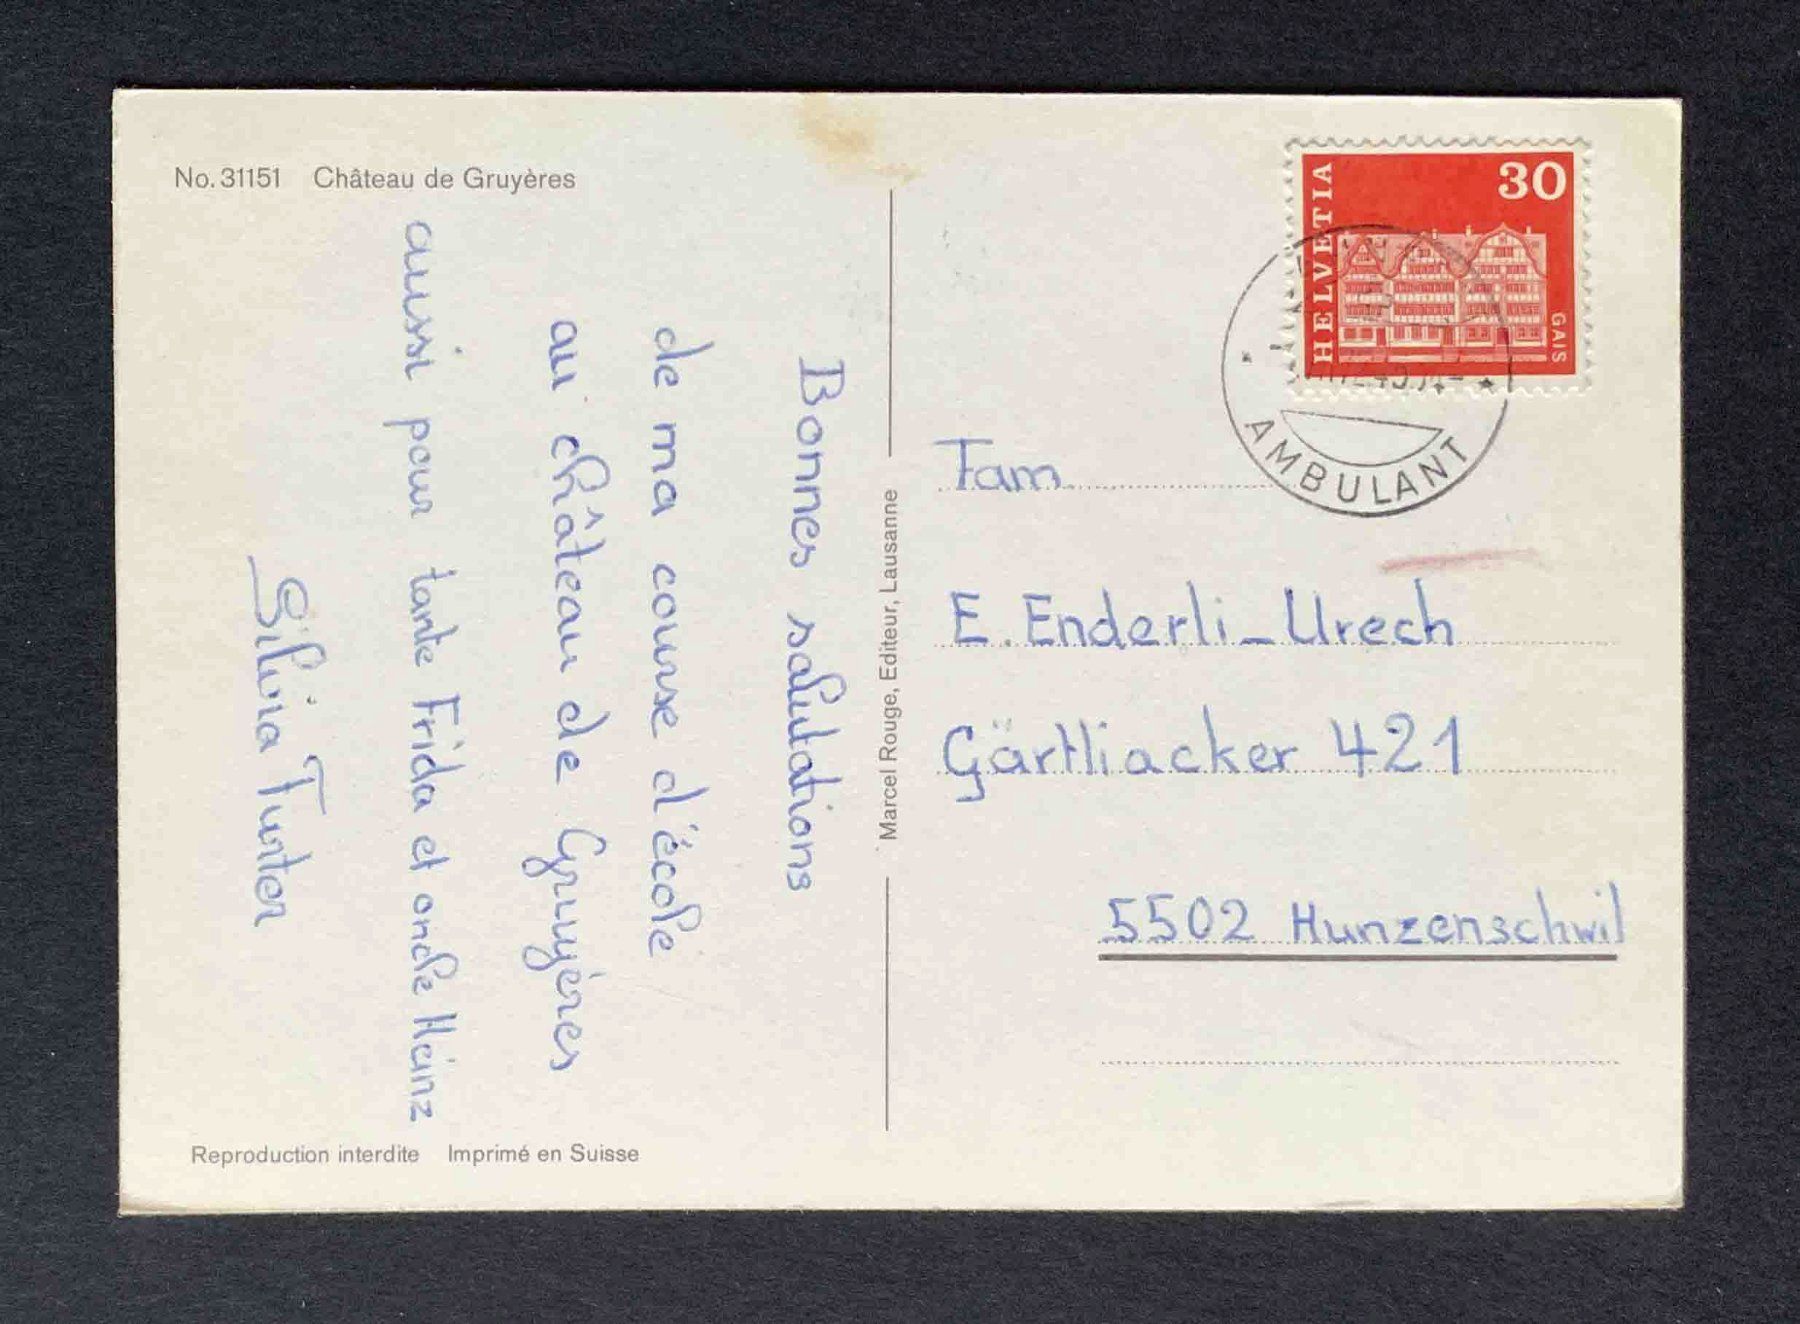 No. 31151 Château de Gruyères
Bonnes salutations
de ma course d'école
au château de Gruyères
aussi pour tante Frida et oncle Heinz
Silvia Turter
Reproduction interdite Imprimé en Suisse
Marcel Rouge, Editeur, Lausanne
HELVETIA
30
GAIS
AMBULANT
Fam
E. Enderli-Urech
Gärtliacker 421
5502 Hunzenschwil